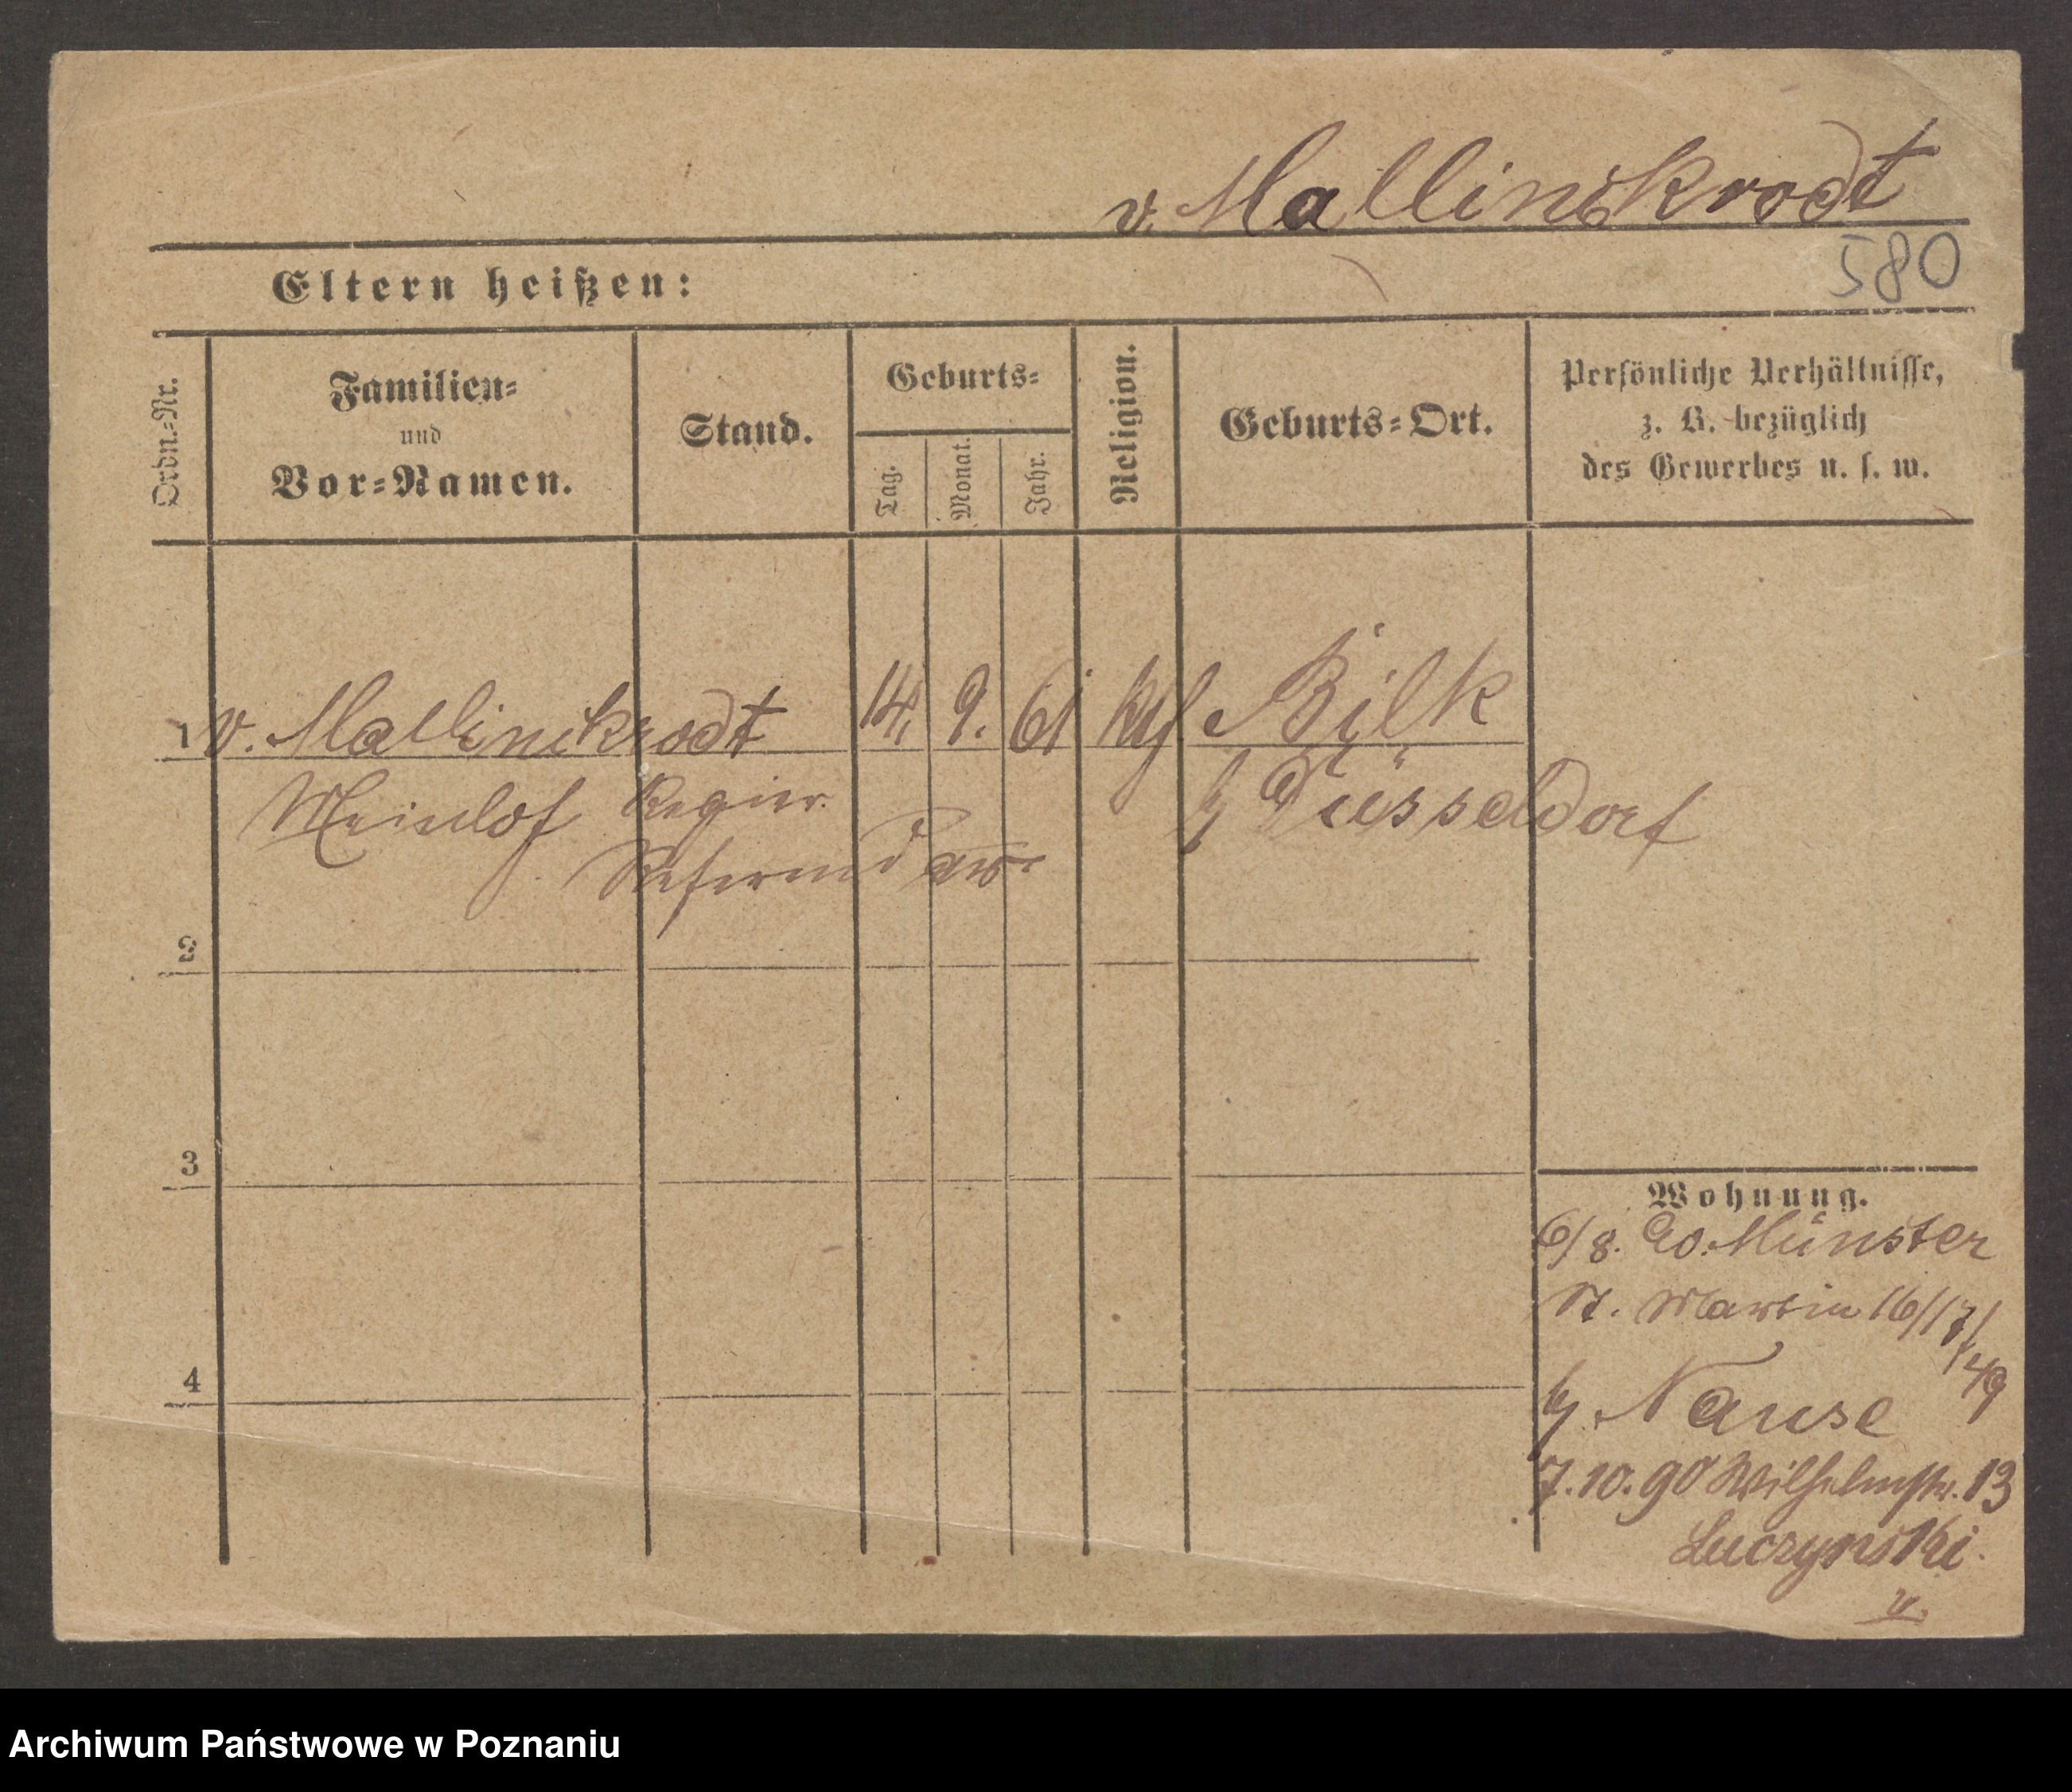 v. Mallinckrodt
580
Eltern heißen:
Ordn.=Nr.
Familien=
und
Vor=Namen.
Stand.
Geburts=
Tag.
Monat.
Jahr.
Religion.
Geburts=Ort.
Persönliche Verhältnisse,
z. B. bezüglich
des Gewerbes u. s. w.
1 v. Mallinckrodt 14. 9. 61 Bilk
Meinlof Regier. b/ Düsseldorf
Referendar
2
3
4
Wohnung.
6/8. 90. Münster
St. Martin 16/17/
b/ Nause
7.10.90 Wilhelmstr. 13
Luczynski.
v.
Archiwum Państwowe w Poznaniu